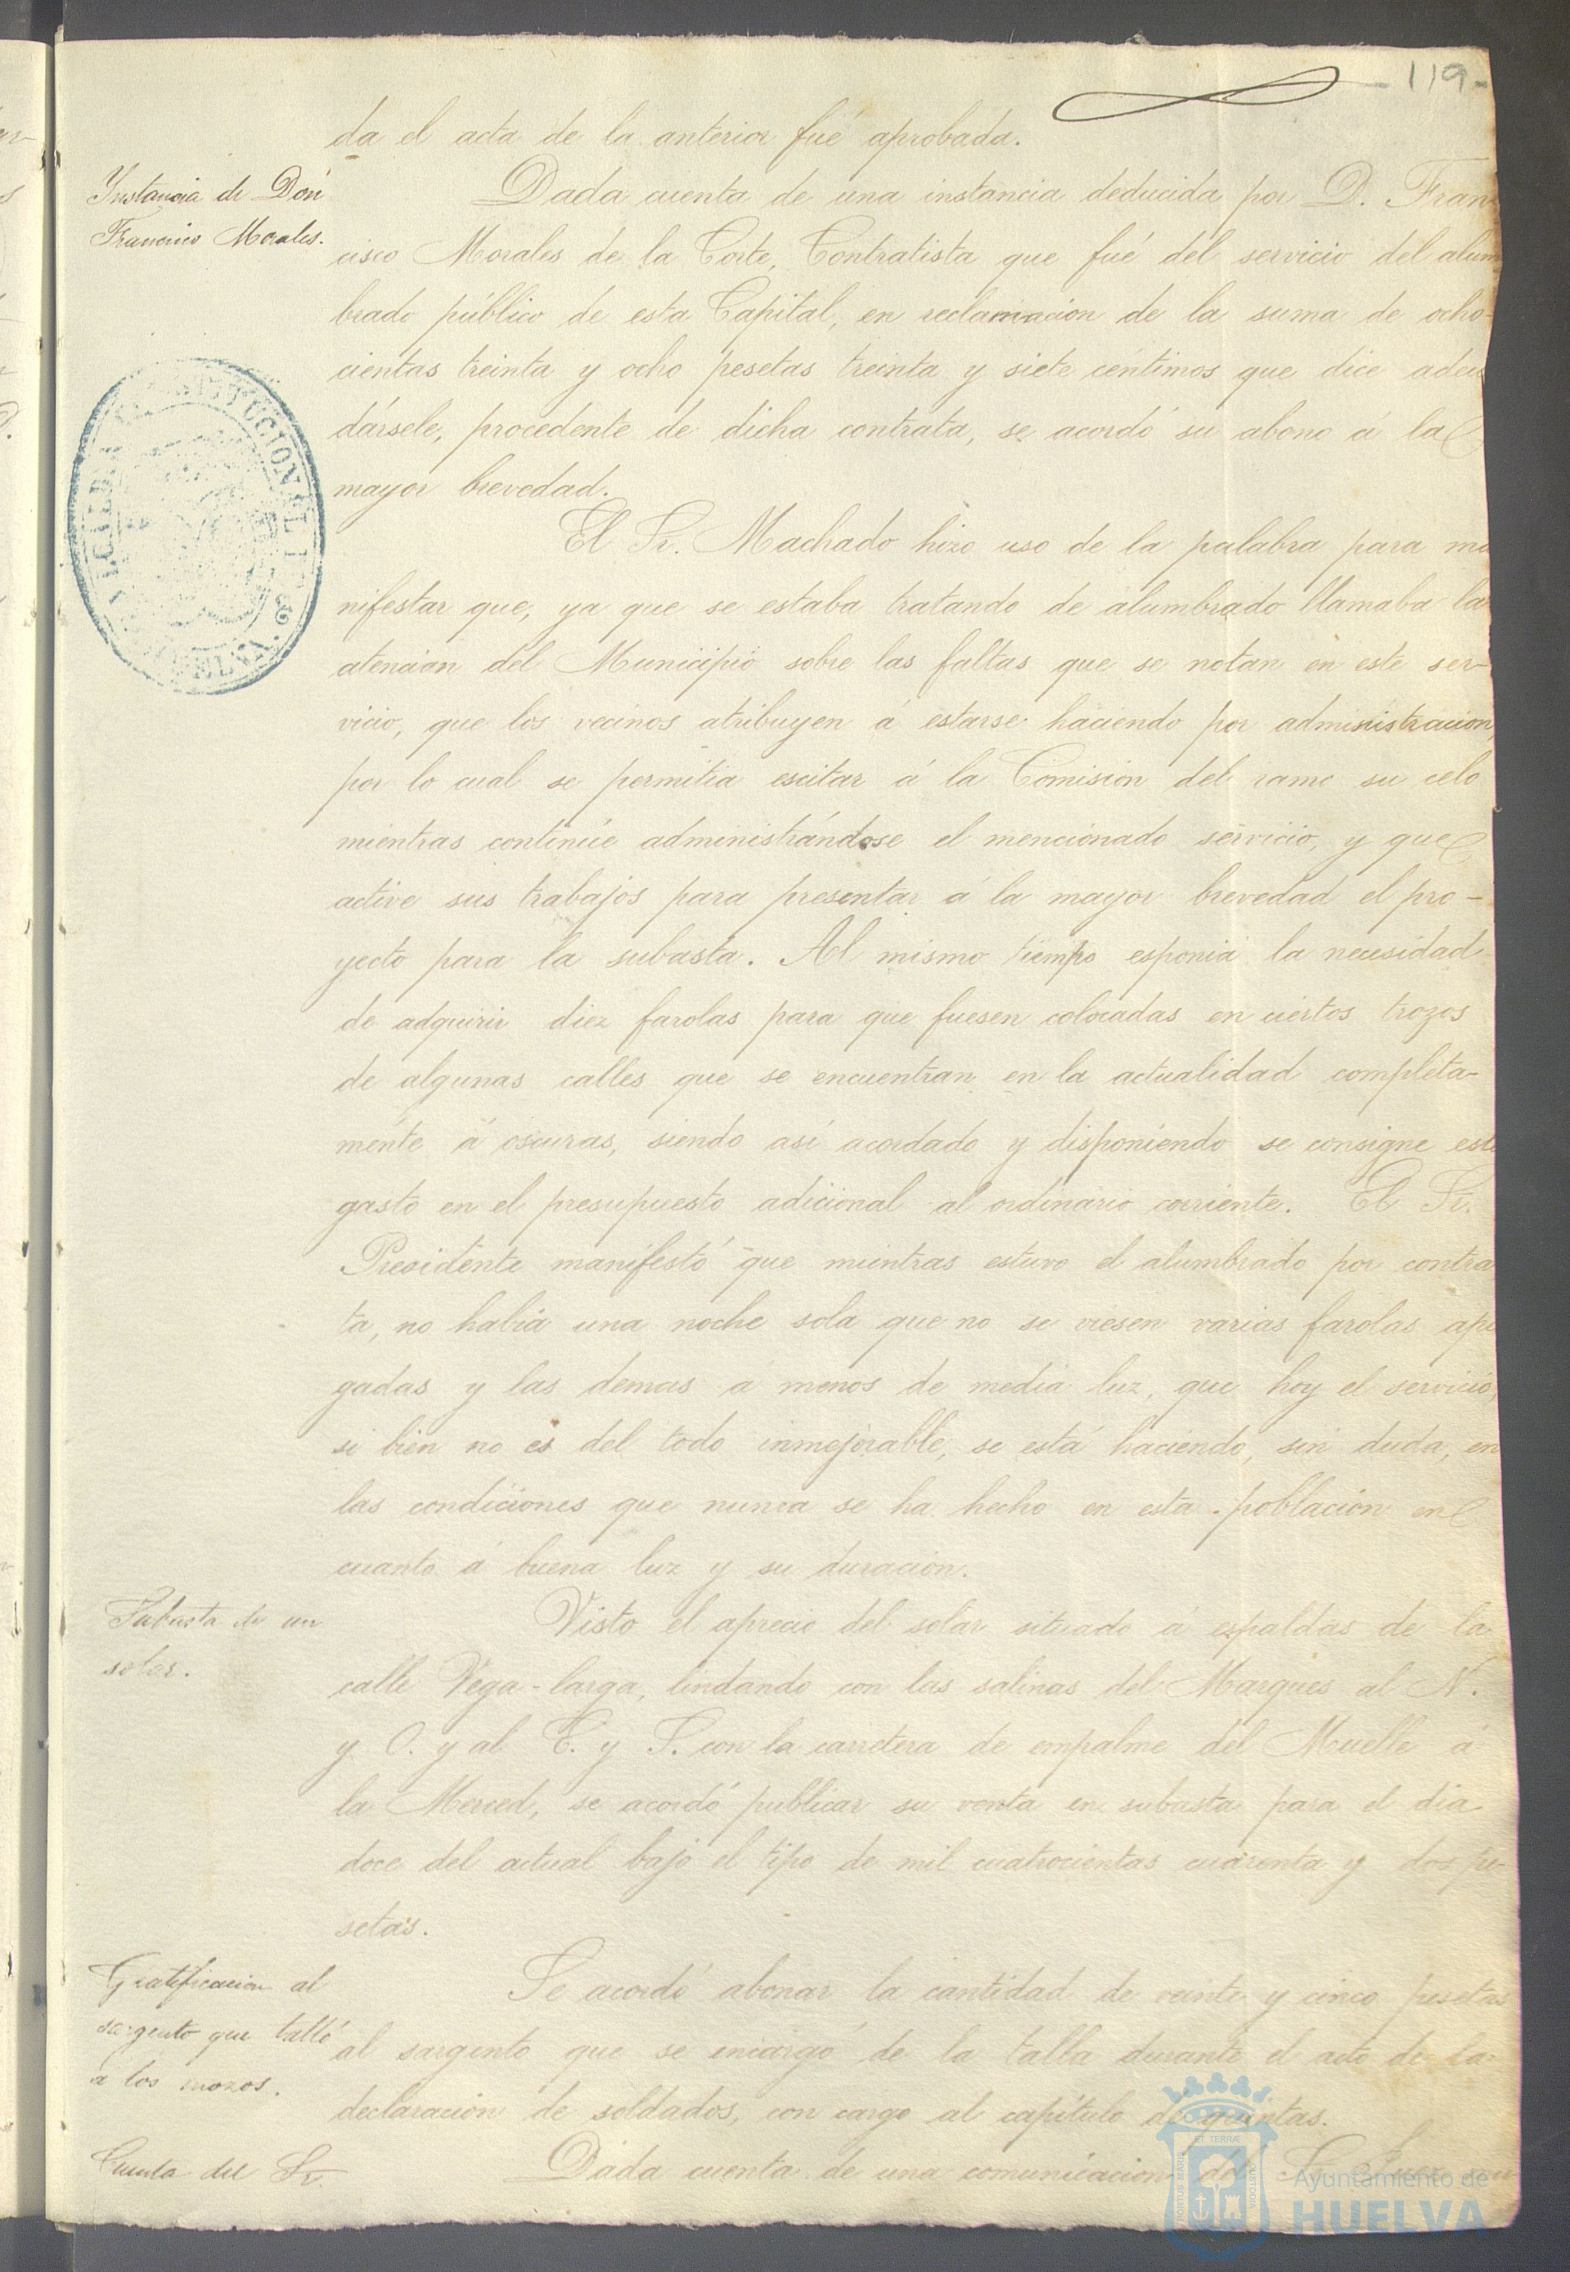 119-
da el acta de la anterior fué aprobada.
Instancia de Don
Francisco Morales.
Dada cuenta de una instancia deducida por D. Fran
cisco Morales de la Corte, Contratista que fué del servicio del alum
brado público de esta Capital, en reclamación de la suma de ocho-
cientas treinta y ocho pesetas treinta y siete céntimos que dice adeu
dársele, procedente de dicha contrata, se acordó su abono á la
mayor brevedad.
El Sr. Machado hizo uso de la palabra para ma
nifestar que, ya que se estaba tratando de alumbrado llamaba la
atencion del Municipio sobre las faltas que se notan en este ser-
vicio, que los vecinos atribuyen á estarse haciendo por administracion,
por lo cual se permitia escitar á la Comisión del ramo su celo
mientras continúe administrándose el mencionado servicio, y que
active sus trabajos para presentar á la mayor brevedad el pro-
yecto para la subasta. Al mismo tiempo esponia la necesidad
de adquirir diez farolas para que fuesen colocadas en ciertos trozos
de algunas calles que se encuentran en la actualidad completa-
mente á oscuras, siendo así acordado y disponiendo se consigne este
gasto en el presupuesto adicional al ordinario corriente. El Sr.
Presidente manifestó que mientras estuvo el alumbrado por contra
ta, no habia una noche sola que no se viesen varias farolas apa
gadas y las demas á menos de media luz, que hoy el servicio,
si bien no es del todo inmejorable, se está haciendo, sin duda, en
las condiciones que nunca se ha hecho en esta población en
cuanto á buena luz y su duración.
Subasta de un
solar.
Visto el aprecio del solar situado á espaldas de la
calle Vega-larga, lindando con las salinas del Marques al N.
y O. y al E. y S. con la carretera de empalme del Muelle á
la Merced, se acordó publicar su venta en subasta para el dia
doce del actual bajo el tipo de mil cuatrocientas cuarenta y dos pe-
setas.
Gratificacion al
sargento que talló
a los mozos.
Se acordó abonar la cantidad de veinte y cinco pesetas
al sargento que se encargó de la talla durante el acto de la
declaración de soldados, con cargo al capítulo de quintas.
Cuenta del Sr.
Dada cuenta de una comunicacion del Sr. Juez
Ayuntamiento de
HUELVA